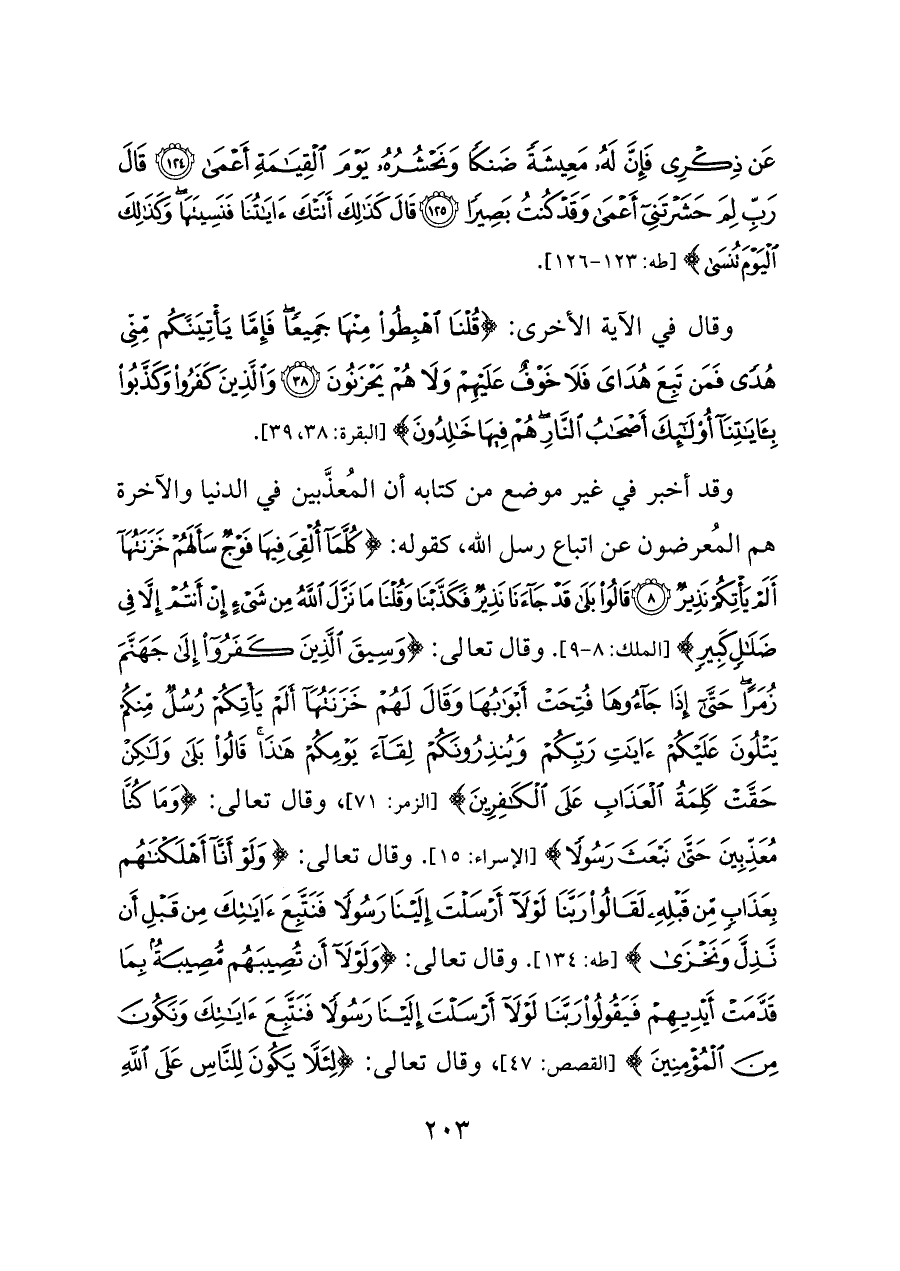 عَن ذِكْرِى فَإِنَّ لَهُۥ مَعِيشَةً ضَنكًا وَنَحْشُرُهُۥ يَوْمَ ٱلْقِيَـٰمَةِ أَعْمَىٰ ١٢٤ قَالَ
رَبِّ لِمَ حَشَرْتَنِىٓ أَعْمَىٰ وَقَدْ كُنتُ بَصِيرًا ١٢٥ قَالَ كَذَٰلِكَ أَتَتْكَ ءَايَـٰتُنَا فَنَسِيتَهَا ۖ وَكَذَٰلِكَ
ٱلْيَوْمَ تُنسَىٰ ﴾ [طه: ١٢٣-١٢٦].
وقال في الآية الأخرى: ﴿قُلْنَا ٱهْبِطُوا۟ مِنْهَا جَمِيعًا ۖ فَإِمَّا يَأْتِيَنَّكُم مِّنِّى
هُدًى فَمَن تَبِعَ هُدَاىَ فَلَا خَوْفٌ عَلَيْهِمْ وَلَا هُمْ يَحْزَنُونَ ٣٨ وَٱلَّذِينَ كَفَرُوا۟ وَكَذَّبُوا۟
بِـَٔايَـٰتِنَآ أُو۟لَـٰٓئِكَ أَصْحَـٰبُ ٱلنَّارِ ۖ هُمْ فِيهَا خَـٰلِدُونَ﴾ [البقرة: ٣٨، ٣٩].
وقد أخبر في غير موضع من كتابه أن المُعذَّبين في الدنيا والآخرة
هم المُعرضون عن اتباع رسل الله، كقوله: ﴿ كُلَّمَآ أُلْقِىَ فِيهَا فَوْجٌ سَأَلَهُمْ خَزَنَتُهَآ
أَلَمْ يَأْتِكُمْ نَذِيرٌ ٨ قَالُوا۟ بَلَىٰ قَدْ جَآءَنَا نَذِيرٌ فَكَذَّبْنَا وَقُلْنَا مَا نَزَّلَ ٱللَّهُ مِن شَىْءٍ إِنْ أَنتُمْ إِلَّا فِى
ضَلَـٰلٍ كَبِيرٍ﴾ [الملك: ٨-٩]. وقال تعالى: ﴿وَسِيقَ ٱلَّذِينَ كَفَرُوٓا۟ إِلَىٰ جَهَنَّمَ
زُمَرًا ۖ حَتَّىٰٓ إِذَا جَآءُوهَا فُتِحَتْ أَبْوَٰبُهَا وَقَالَ لَهُمْ خَزَنَتُهَآ أَلَمْ يَأْتِكُمْ رُسُلٌ مِّنكُمْ
يَتْلُونَ عَلَيْكُمْ ءَايَـٰتِ رَبِّكُمْ وَيُنذِرُونَكُمْ لِقَآءَ يَوْمِكُمْ هَـٰذَا ۚ قَالُوا۟ بَلَىٰ وَلَـٰكِنْ
حَقَّتْ كَلِمَةُ ٱلْعَذَابِ عَلَى ٱلْكَـٰفِرِينَ﴾ [الزمر: ٧١]، وقال تعالى: ﴿وَمَا كُنَّا
مُعَذِّبِينَ حَتَّىٰ نَبْعَثَ رَسُولًا﴾ [الإسراء: ١٥]. وقال تعالى: ﴿ وَلَوْ أَنَّآ أَهْلَكْنَـٰهُم
بِعَذَابٍ مِّن قَبْلِهِۦ لَقَالُوا۟ رَبَّنَا لَوْلَآ أَرْسَلْتَ إِلَيْنَا رَسُولًا فَنَتَّبِعَ ءَايَـٰتِكَ مِن قَبْلِ أَن
نَّذِلَّ وَنَخْزَىٰ ﴾ [طه: ١٣٤]. وقال تعالى: ﴿وَلَوْلَآ أَن تُصِيبَهُم مُّصِيبَةٌۢ بِمَا
قَدَّمَتْ أَيْدِيهِمْ فَيَقُولُوا۟ رَبَّنَا لَوْلَآ أَرْسَلْتَ إِلَيْنَا رَسُولًا فَنَتَّبِعَ ءَايَـٰتِكَ وَنَكُونَ
مِنَ ٱلْمُؤْمِنِينَ ﴾ [القصص: ٤٧]، وقال تعالى: ﴿لِئَلَّا يَكُونَ لِلنَّاسِ عَلَى ٱللَّهِ
٢٠٣